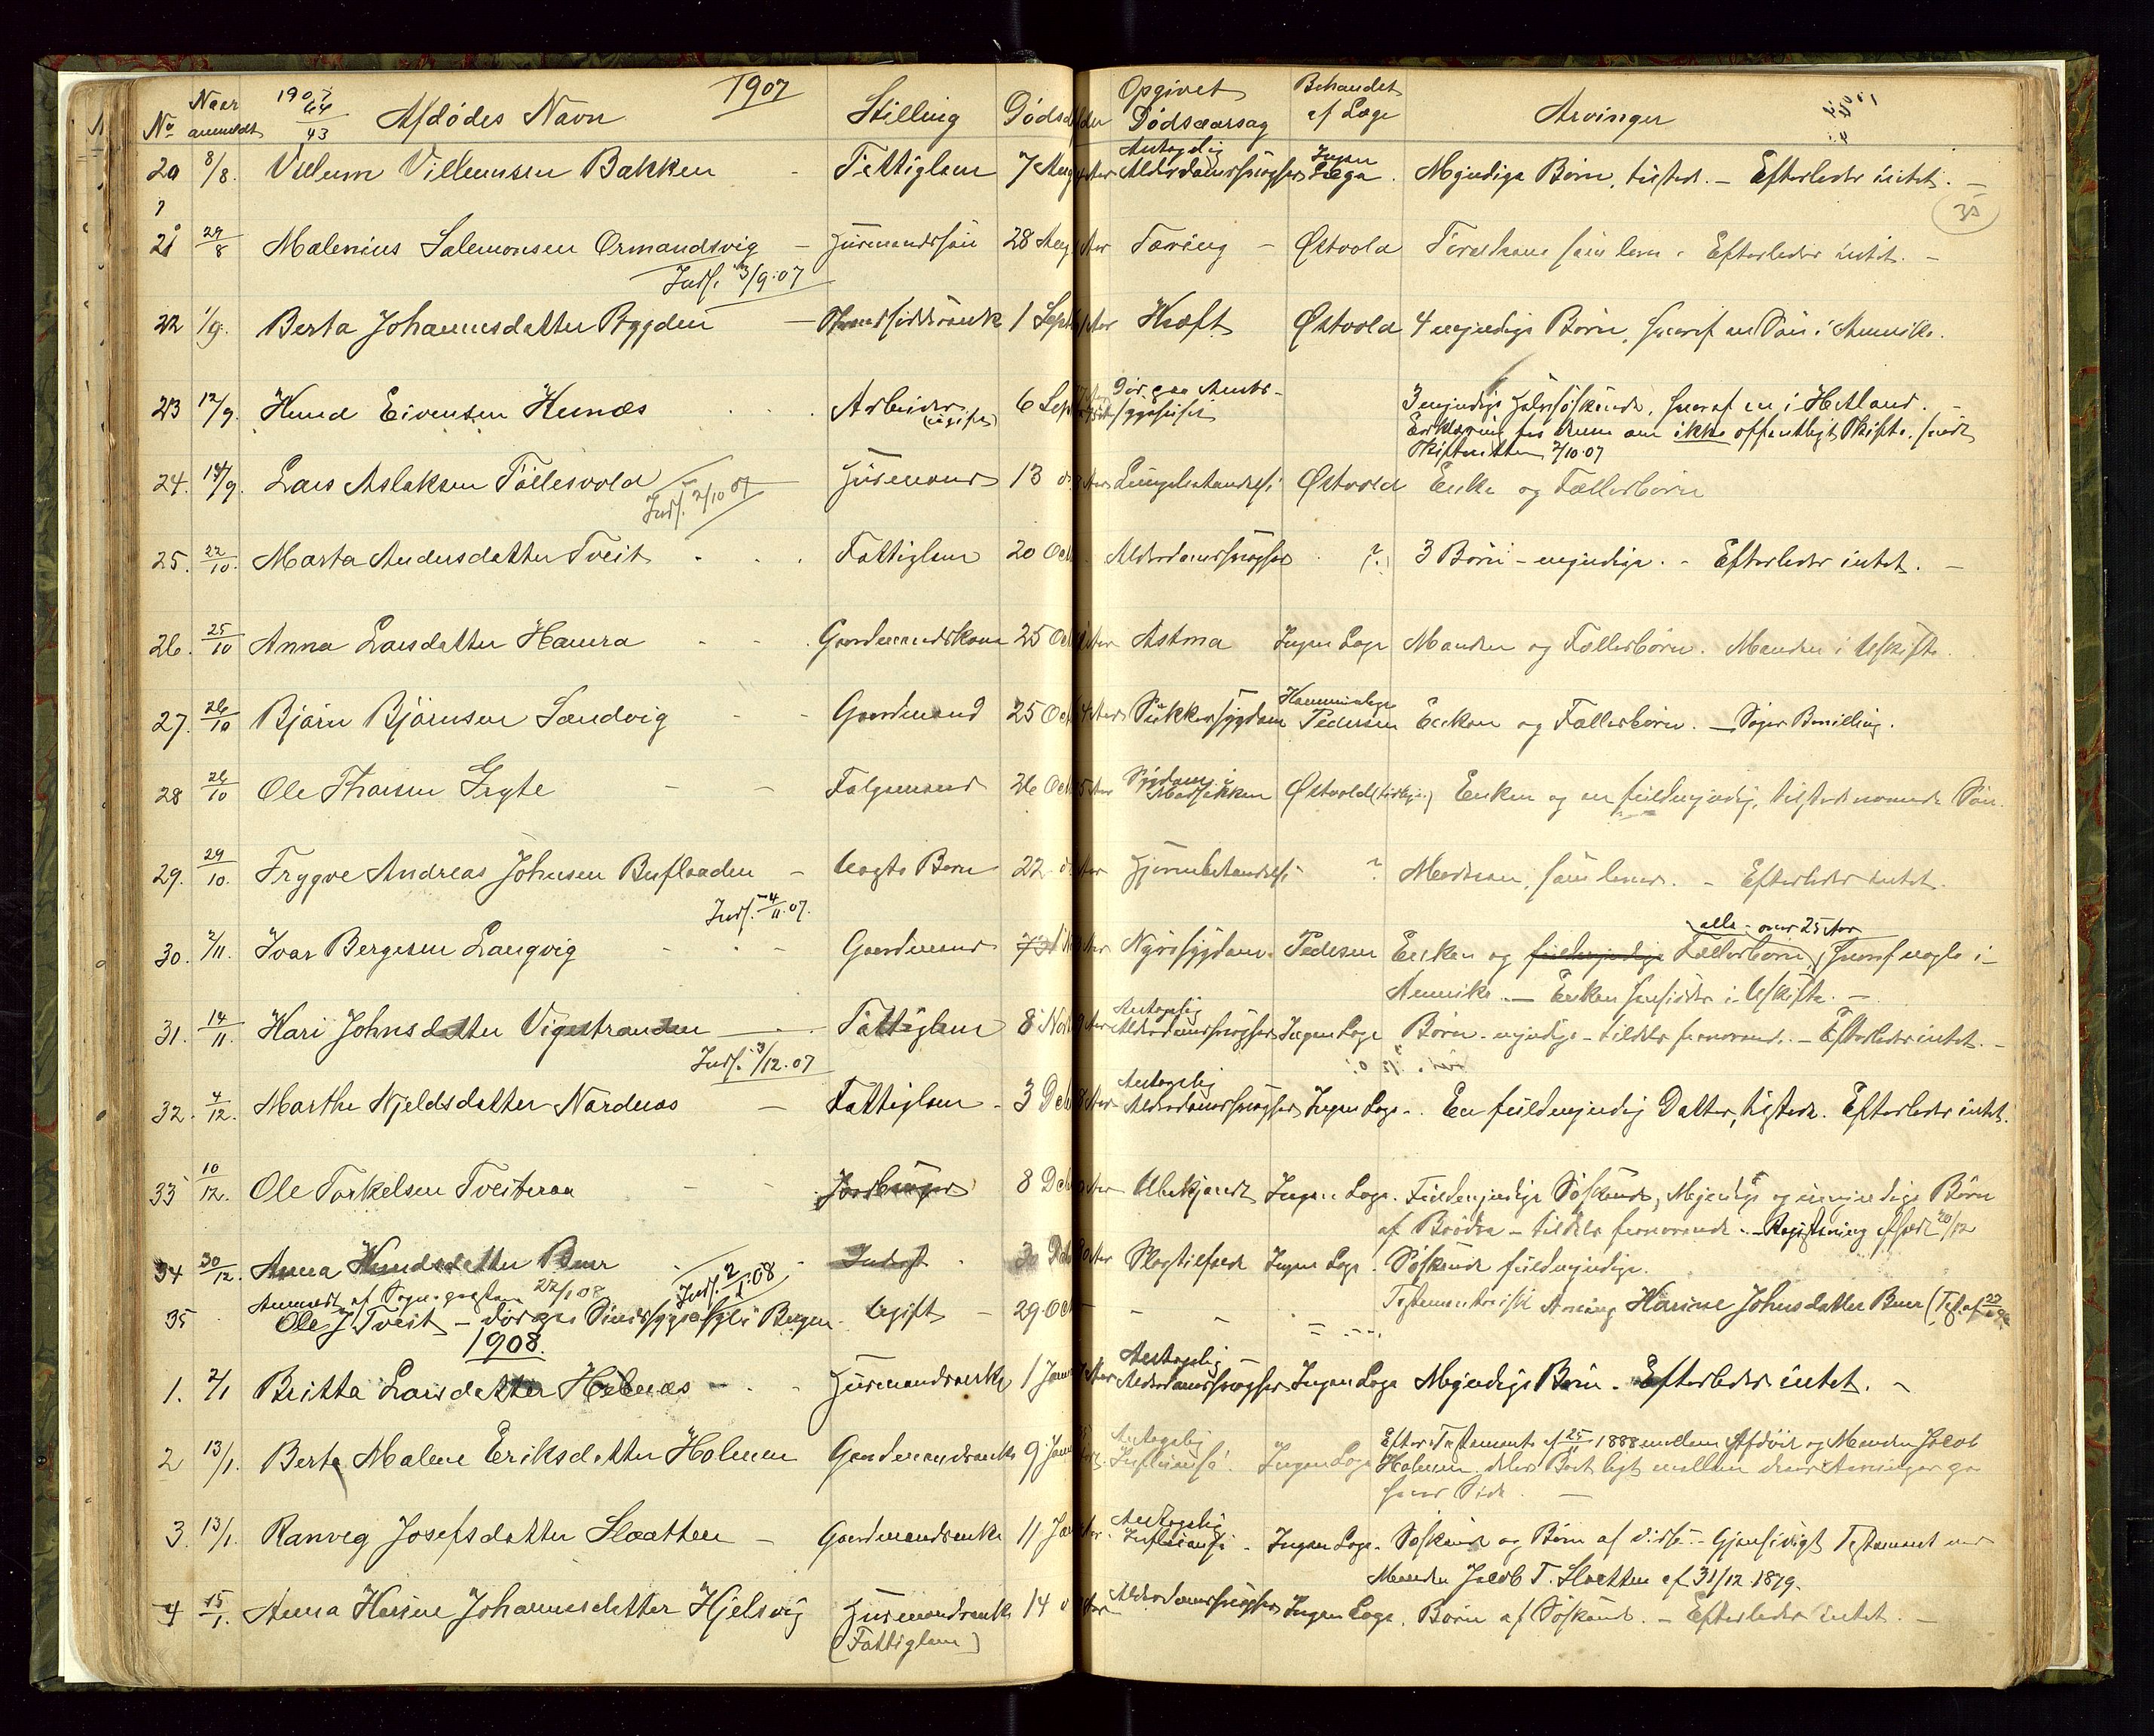 1907
1907 64 43
No Naar anmeldt Afdødes Navn Stilling Dødsd den Opgivet Dødsaarsag Behandet af Læge Arvinger
35
20 8/8. Villum Villumsen Bakken - Fattiglem 7 Aug Antagelig Alderdomssvaghed Ingen Læge. Myndige Børn, tilsted. - Efterlader intet. -
21 29/8 Malenius Salemonsen Ormandsvig - Husmandssøn 28 Aug Tæring - Østvold Forældrene som leve. Efterlader intet. -
Indf. 3/9.07
22 1/9. Berta Johannesdatter Bygden - Strandsidderenke 1 Sept Kræft Østvold 4 myndige Børn, hvoraf en Søn i Amerika.
23 12/9. Knud Eivensen Hunæs Arbeider (ugift) 6 Sept Død paa Amts-sygehuset 3 myndige Halvsøskende, hvoraf en i Hetland. -
Erklæring fra denne om ikke offentligt Skifte, sendt
Skifteretten 2/10.07
24. 14/9. Lars Aslaksen Tøllesvold Husmand 13 Lungebetændelse Østvold Enke og Fællesbørn
Indf. 2/10 07
25. 22/10. Marta Andersdatter Tveit - Fattiglem 20 Oct Alderdomssvaghed ? 3 Børn - myndige. - Efterlader intet. -
26. 25/10 Anna Larsdatter Hamra - - Gaardmandskone 25 Oct Astma Ingen Læge Manden og Fællesbørn. Manden i Uskifte.
27. 26/10 Bjørn Bjørnsen Sandvig - - Gaardmand 25 Oct Sukkersygdom Kommunelæge Pedersen Enken og Fællesbørn. - Søger Bevilling.
28 26/10 Ole Thorsen Gryte - - Følgemand 26 Oct Sygdom i Mavesækken Østvold Enken og en fuldmyndig, tilstedeværende Søn.
29. 29/10. Trygve Andreas Johnsen Buflaaden - Uægte Barn 22 Hjernebetændelse ? Moderen, som lever. - Efterlader intet.
Indf. 4/11.07.
30. 2/11. Ivar Bergesen Langvig - - Gaardmand Nyresygdom Pedersen Enken og fuldmyndige Fællesbørn, alle over 25 Aar hvoraf nogle i
Amerika. - Enken hensidder i Uskifte. -
31. 14/11. Kari Johnsdatter Vigestranden Fattiglem 8 Nov Antagelig Alderdomssvaghed Ingen Læge Børn - myndige - tildels fraværende. - Efterlader intet. -
Indf. 3/12.07
32. 4/12. Marthe Kjeldsdatter Nordnæs - Fattiglem - 3 Dec Antagelig Alderdomssvaghed Ingen Læge - En fuldmyndig Datter, tilstede. Efterlader intet.
33 10/12. Ole Torkelsen Tveiteraa - - Jordbruger 8 Dec Ubekjendt Ingen Læge. Fuldmyndige Søskende, Myndige og umyndige Børn
af Brødre - tildels fraværende. - Registrering afholdt 20/12
34 30/12. Anna Knudsdatter Buer Inderst 30 Dec Slagtilfælde Ingen Læge. Søskende fuldmyndige.
Indf. 2/1.08
Testamentarisk Arving Karine Johnsdatter Buer (Test. af 22
Anmeldt af Sogne 22/1 08
35 Ole J Tveit - død paa Sindssygeasyl i Bergen - Ugift - 29 Oct
1908.
1. 2/1 Britta Larsdatter Helnæs - Husmandsenke 1 Jan Antagelig Alderdomssvaghed Ingen Læge Myndige Børn. Efterlader intet. -
2 13/1. Berta Malene Eriksdatter Holmen Gaardmandsenke 9 Jan Antagelig Influensa Ingen Læge Efter Testamente af 25/11 1888 mellem Afdøde og Manden Jacob
Holmen deles Boet ligt mellem deres Arvinger paa
hver Side. -
3. 13/1. Ranveg Josefsdatter Slaatten - Gaardmandsenke 11 Jan Antagelig Influensa - Ingen Læge - Søskende og Børn af disse. - Gjensidigt Testament med
Manden Jacob T. Slaatten af 31/12.1879.
4 15/1. Anna Karine Johannesdatter Hjelsvig Husmandsenke (Fattiglem) 14 Alderdomssvaghed Ingen Læge. Børn af Søskende. - Efterlader intet. -